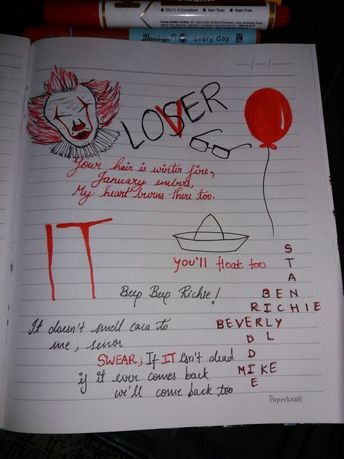 Non Toxic
every day
LOSER
V
Your hair is winter fire,
January embers,
My heart burns there too.
IT
you'll float too
S
T
A
Beep Beep Richie!
BEN
RICHIE
It doesn't smell caca to
BEVERLY
me, senor
D L
SWEAR; If IT Isn't dead
D
if it ever comes back
MIKE
we'll come back too
E
Paperkraft